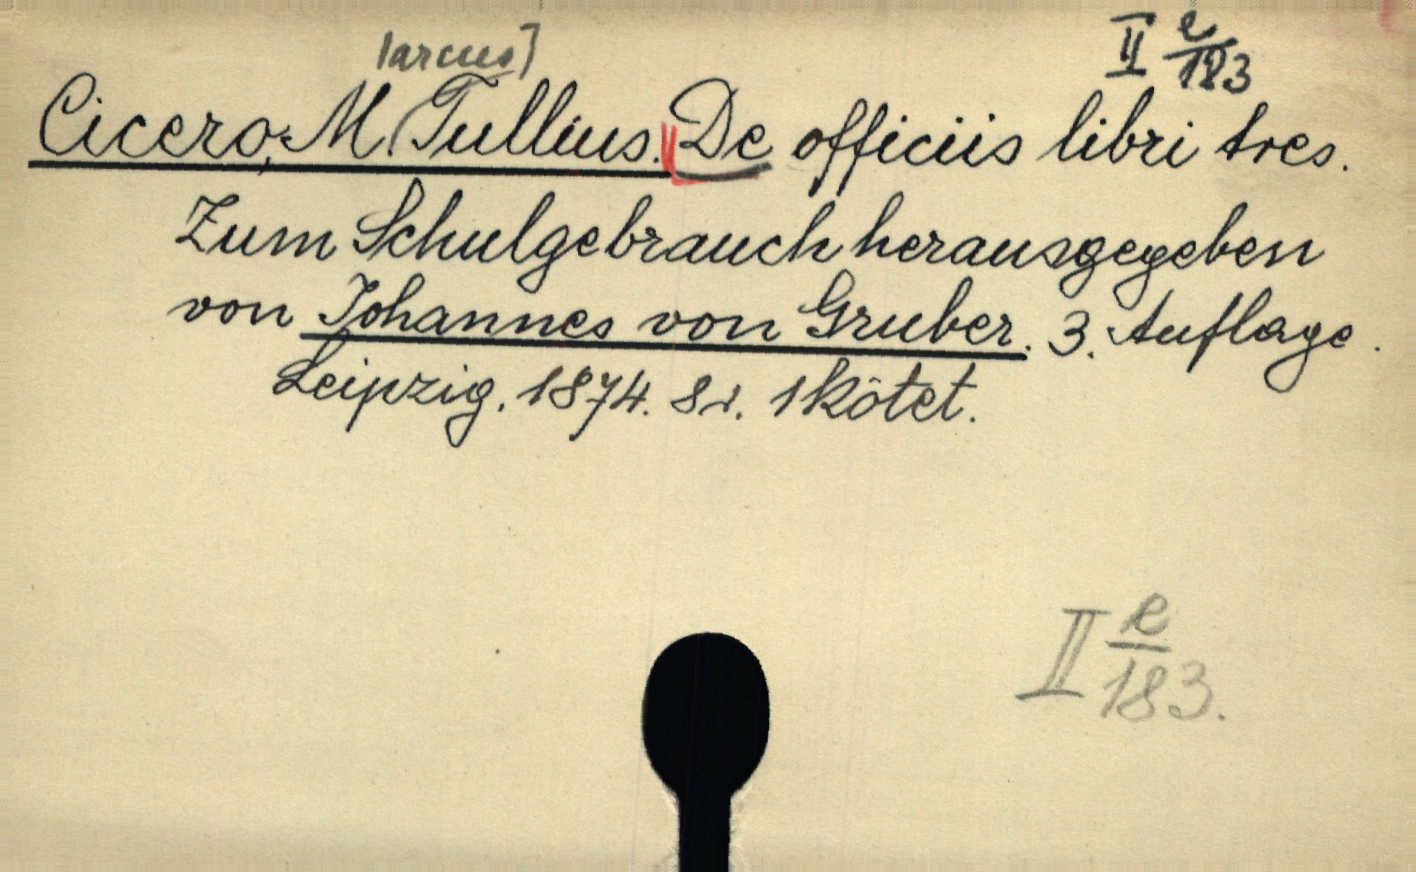 [arcus]
II e/183
Cicero, M. Tullius. De officiis libri tres.
Zum Schulgebrauch herausgegeben
von Johannes von Gruber. 3. Auflage.
Leipzig. 1874. 8r. 1 kötet.
II e/183.